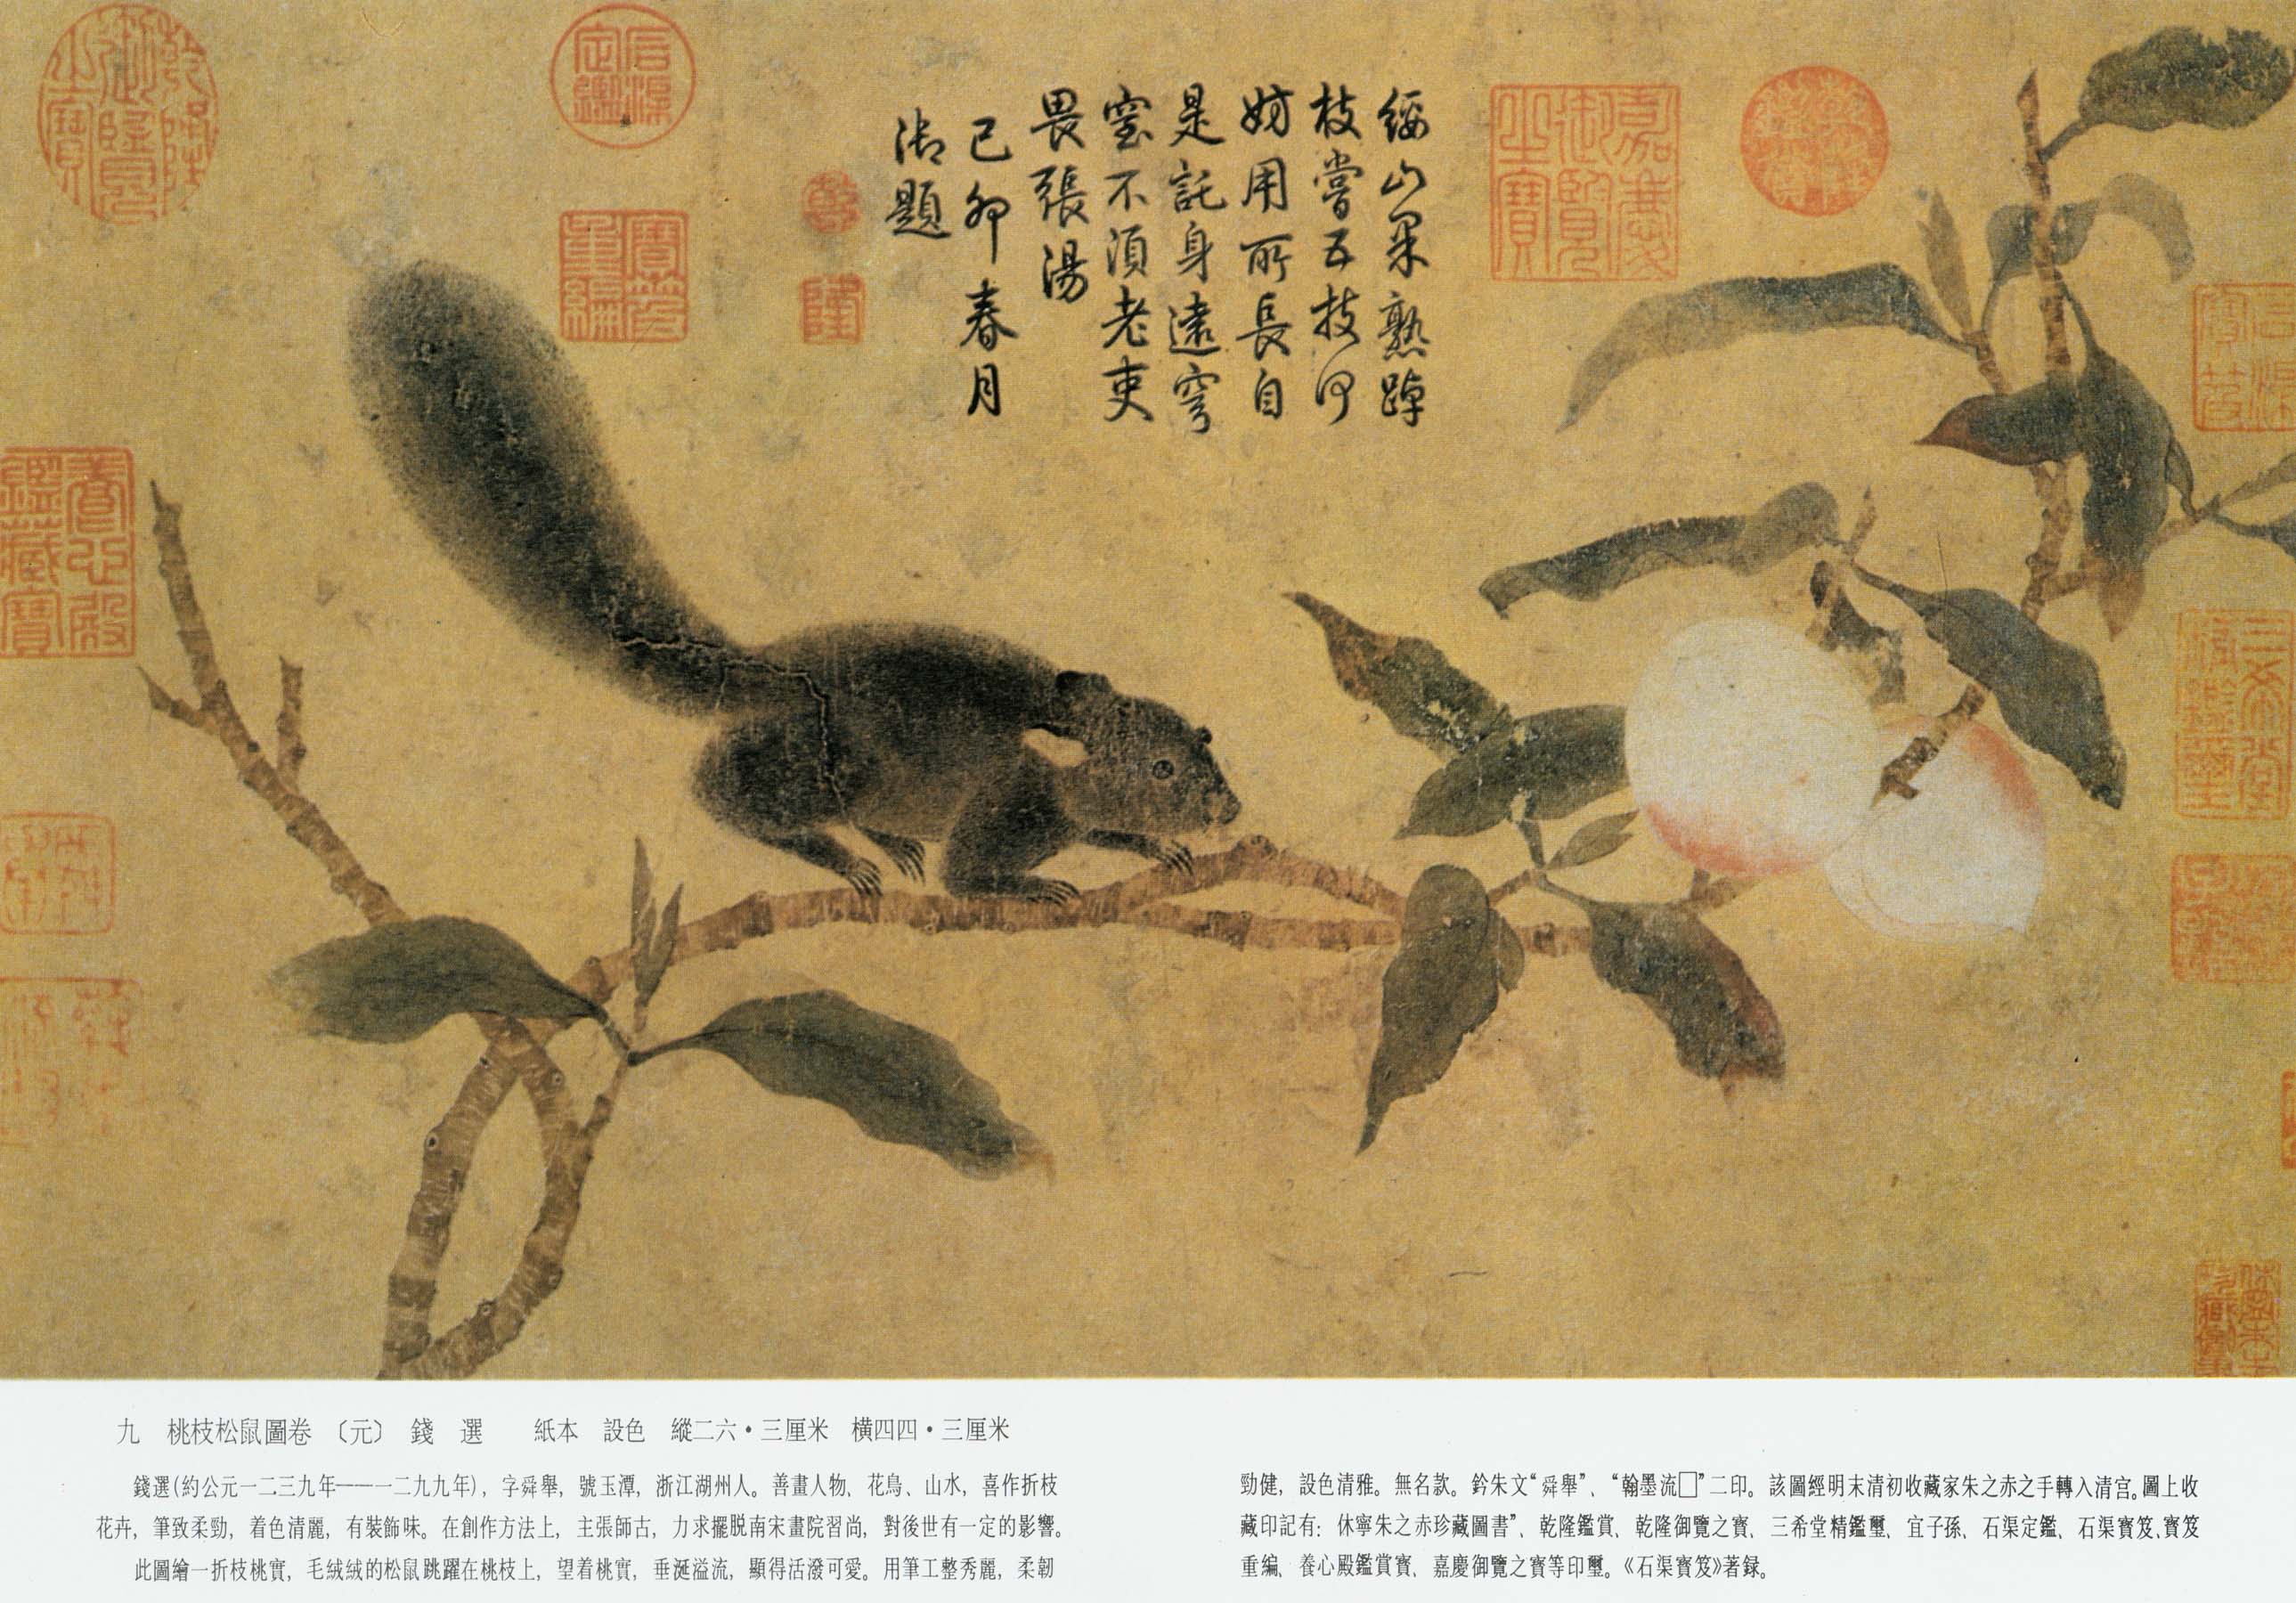 綏山果熟踔
枝嘗五技何
妨用所長自
是託身遠穹
窒不須老吏
畏張湯
己卯春月
御題
乾隆御覽之寶
石渠定鑑
寶笈重編
乾
隆
嘉慶御覽之寶
石渠寶笈
三希堂精鑑璽
宜子孫
養心殿鑑藏寶
九　桃枝松鼠圖卷　〔元〕　錢　選　　紙本　設色　縱二六・三厘米　横四四・三厘米
錢選(約公元一二三九年——一二九九年)，字舜舉，號玉潭，浙江湖州人。善畫人物、花鳥、山水，喜作折枝
花卉，筆致柔勁，着色清麗，有裝飾味。在創作方法上，主張師古，力求擺脱南宋畫院習尚，對後世有一定的影響。
此圖繪一折枝桃實，毛絨絨的松鼠跳躍在桃枝上，望着桃實，垂涎溢流，顯得活潑可愛。用筆工整秀麗，柔韌
勁健，設色清雅。無名款。鈐朱文“舜舉”、“翰墨流□”二印。該圖經明末清初收藏家朱之赤之手轉入清宫。圖上收
藏印記有：休寧朱之赤珍藏圖書”、乾隆鑑賞、乾隆御覽之寶、三希堂精鑑璽、宜子孫、石渠定鑑、石渠寶笈、寶笈
重編、養心殿鑑賞寶、嘉慶御覽之寶等印璽。《石渠寶笈》著録。